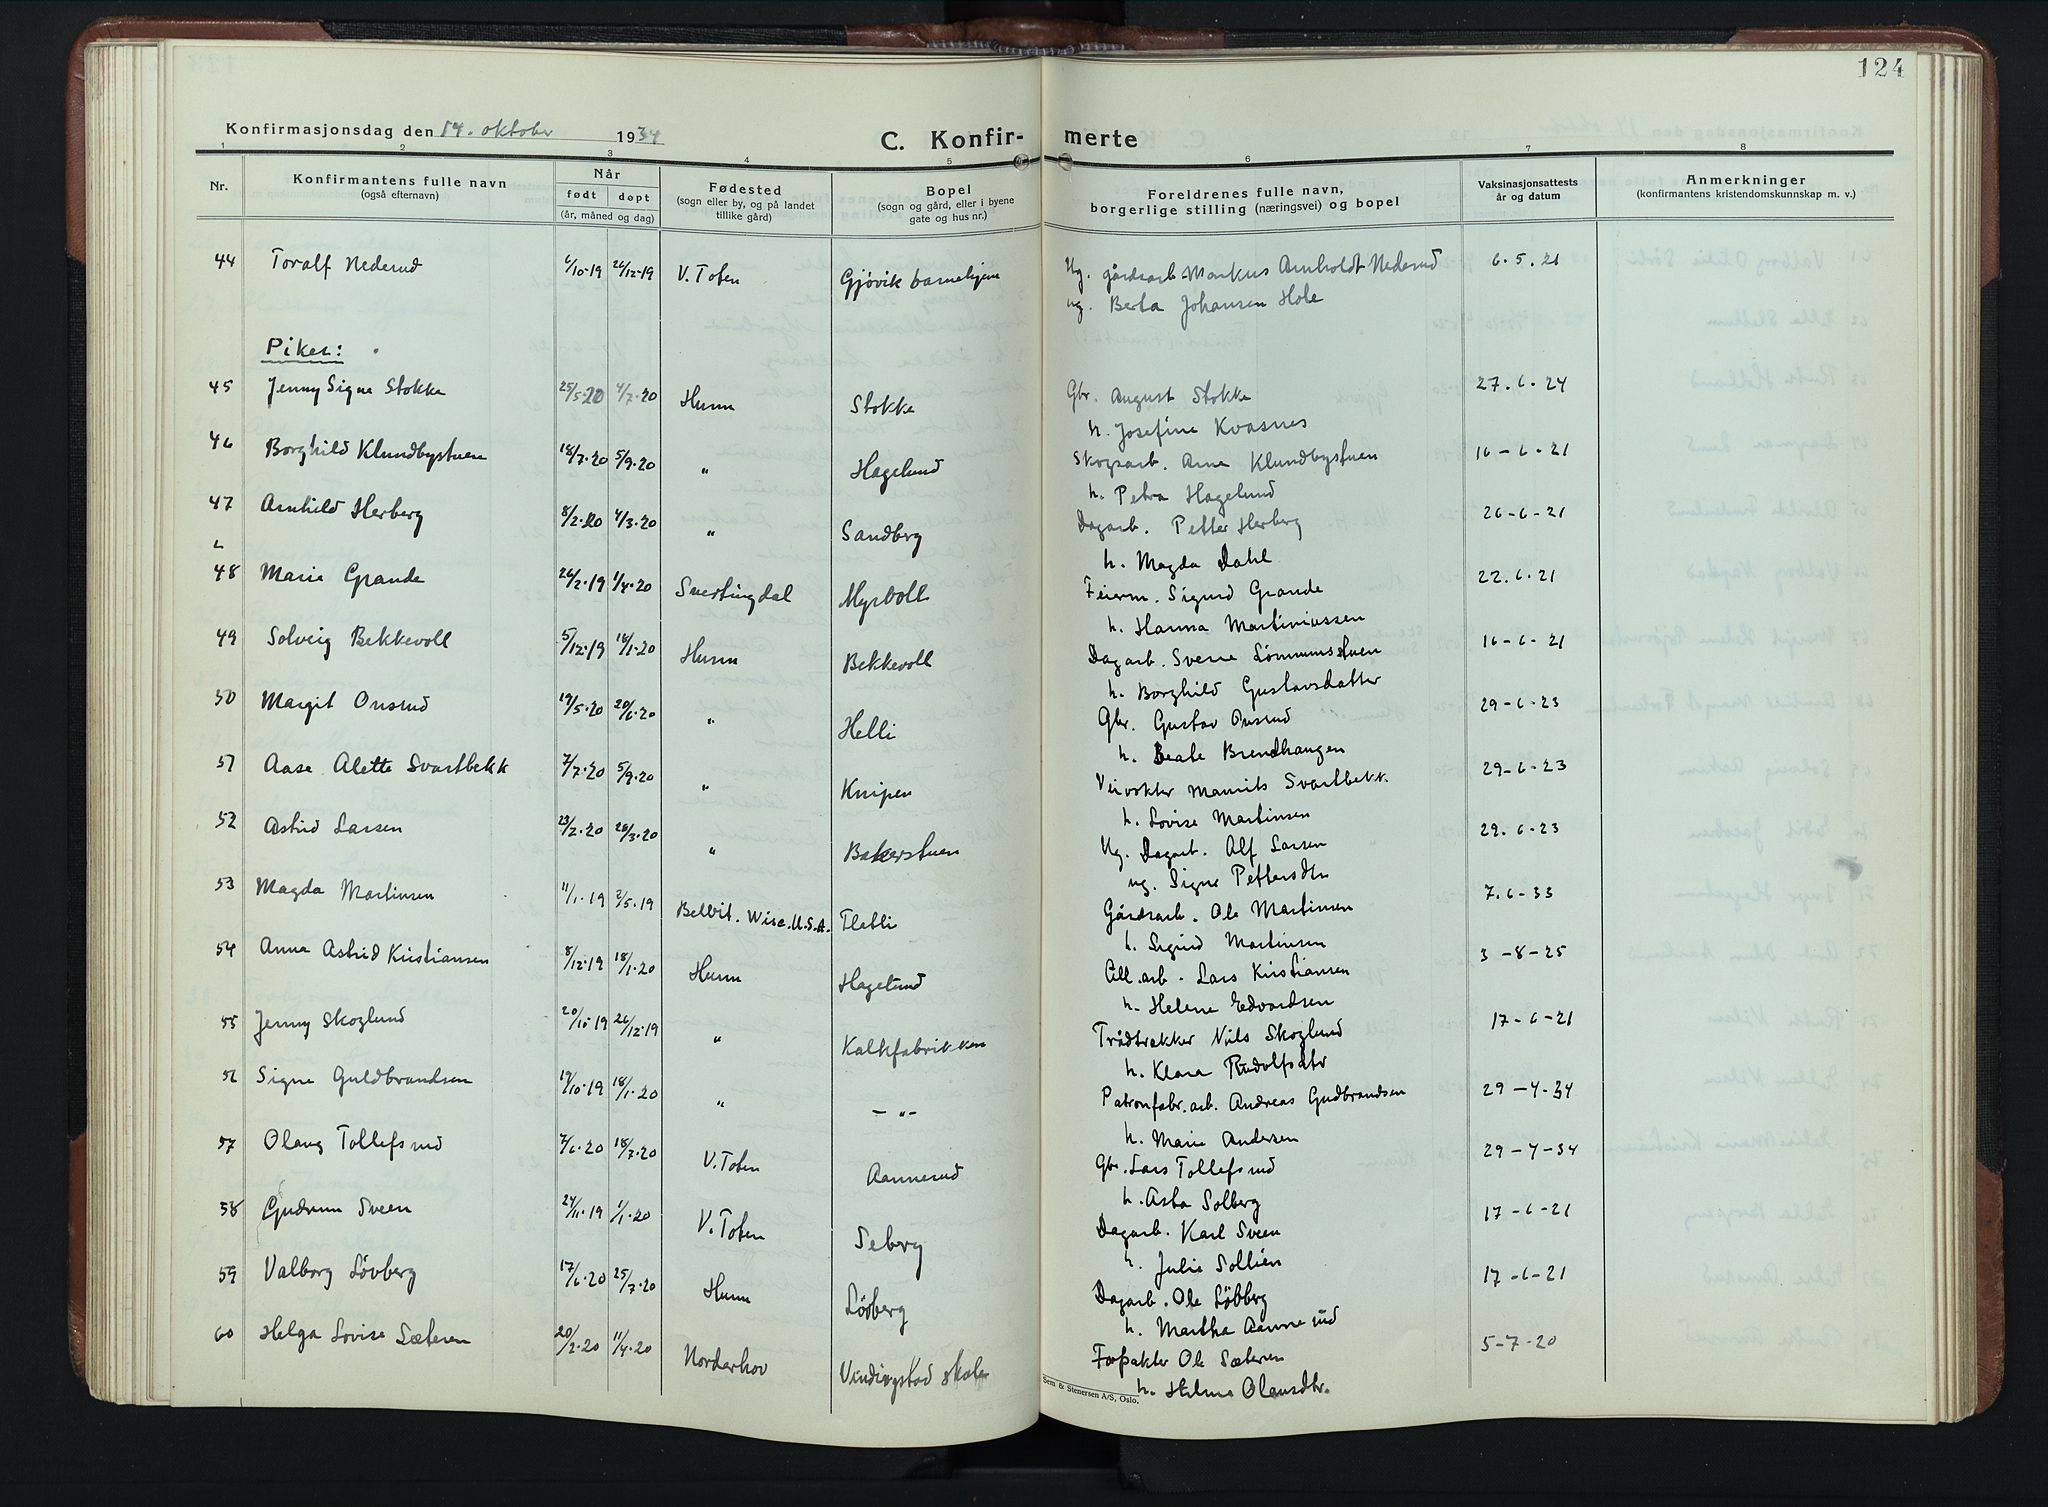 124
Konfirmasjonsdag den 14. oktober 1934
C. Konfir- merte
1 2 3 4 5 6 7 8
Nr. Konfirmantens fulle navn (også efternavn) Når født døpt (år, måned og dag) Fødested (sogn eller by, og på landet tillike gård) Bopel (sogn og gård, eller i byene gate og hus nr.) Foreldrenes fulle navn, borgerlige stilling (næringsvei) og bopel Vaksinasjonsattests år og datum Anmerkninger (konfirmantens kristendomskunnskap m. v.)
44 Toralf Nederud 6/10-19 26/12-19 V. Toten Gjøvik barnehjem Ug. gårdsarb. Markus Arnholdt Nederud 6.5.21
ug. Berta Johansen Hole
Piker:
45 Jenny Signe Stokke 25/5-20 4/7-20 Hunn Stokke Gbr. August Stokke 27.6.24
h. Josefine Kvasnes
46 Borghild Klundbystuen 18/7-20 5/9-20 " Hagelund Skogsarb. Arne Klundbystuen 16-6-21
h. Petra Hagelund
47 Arnhild Herberg 8/2-20 4/3-20 " Sandberg Dagarb. Petter Herberg 26-6-21
h. Magda Dahl
48 Marie Grande 26/2-19 1/4-20 Snertingdal Myrvoll Feierm. Sigurd Grande 22.6.21
h. Hanna Martiniussen
49 Solveig Bekkevoll 5/12-19 18/1-20 Hunn Bekkevoll Dagarb. Sverre Lømmunstuen 16-6-21
h. Borghild Gustavsdatter
50 Margit Onsrud 19/5-20 20/6-20 " Helli Gbr. Gustav Onsrud 29-6-23
h. Beate Brendhaugen
51 Aase Alette Svartbekk 7/7-20 5/9-20 " Knipen Veivokter Mauritz Svartbekk 29-6-23
h. Lovise Martinsen
52 Astrid Larsen 23/2-20 28/3-20 " Bakerstuen Ug. Dagarb. Alf Larsen 29.6-23
ug. Signe Pettersdtr
53 Magda Martinsen 11/1-19 2/5-19 Beloit. Wisc. U.S.A. Fletli Gårdsarb. Ole Martinsen 7.6-33
h. Sigrid Martinsen
54 Anna Astrid Kristiansen 8/12-19 18/1-20 Hunn Hagelund Cell.arb. Lars Kristiansen 3-8-25
h. Helene Edvardsen
55 Jenny Skoglund 20/10-19 26/12-19 " Kalkfabrikken Trådtrekker Nils Skoglund 17-6-21
h. Klara Rudolfsdtr
56 Signe Guldbrandsen 19/10-19 18/1-20 " -"- Patronfabr.arb. Andreas Gudbrandsen 29-4-34
h. Marie Andersen
57 Olaug Tollefsrud 7/6-20 18/7-20 V. Toten Aannerud Gbr. Lars Tollefsrud 29-4-34
h. Asta Solberg
58 Gudrun Sveen 24/11-19 1/1-20 V. Toten Seberg Dagarb. Karl Sveen 17-6-21
h. Julie Sollien
59 Valborg Lövberg 17/6-20 25/7-20 Hunn Lövberg Dagarb. Ole Lövberg 17-6-21
h. Martha Aannerud
60 Helga Lovise Sæteren 20/2-20 11/4-20 Norderhov Vindingstad skole Forpakter Ole Sæteren 5-7-20
h. Helma Olausdtr.
Sem & Stenersen A/S, Oslo.